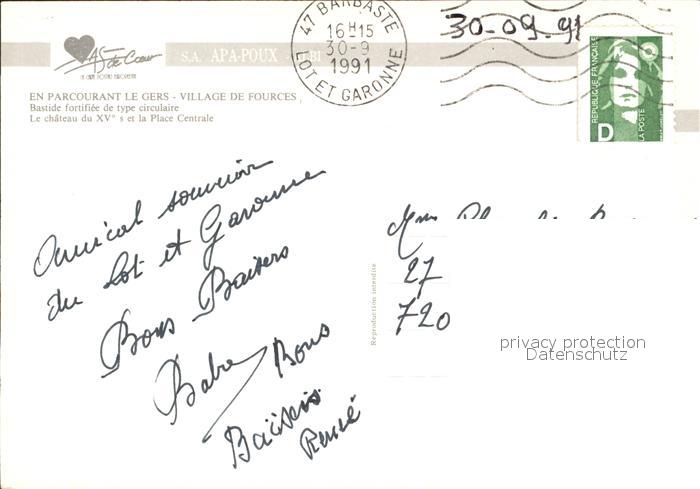 47 BARBASTE
16H15
30-9
1991
LOT ET GARONNE
30-09-91
As de Cœur
S.A. APA-POUX
EN PARCOURANT LE GERS - VILLAGE DE FOURCES
Bastide fortifiée de type circulaire
Le château du XV° s et la Place Centrale
REPUBLIQUE FRANÇAISE
D
LA POSTE
Amical souvenir
du Lot et Garonne
Bons Baisers
Bons
Baisers
René
Reproduction interdite
27
720
privacy protection
Datenschutz